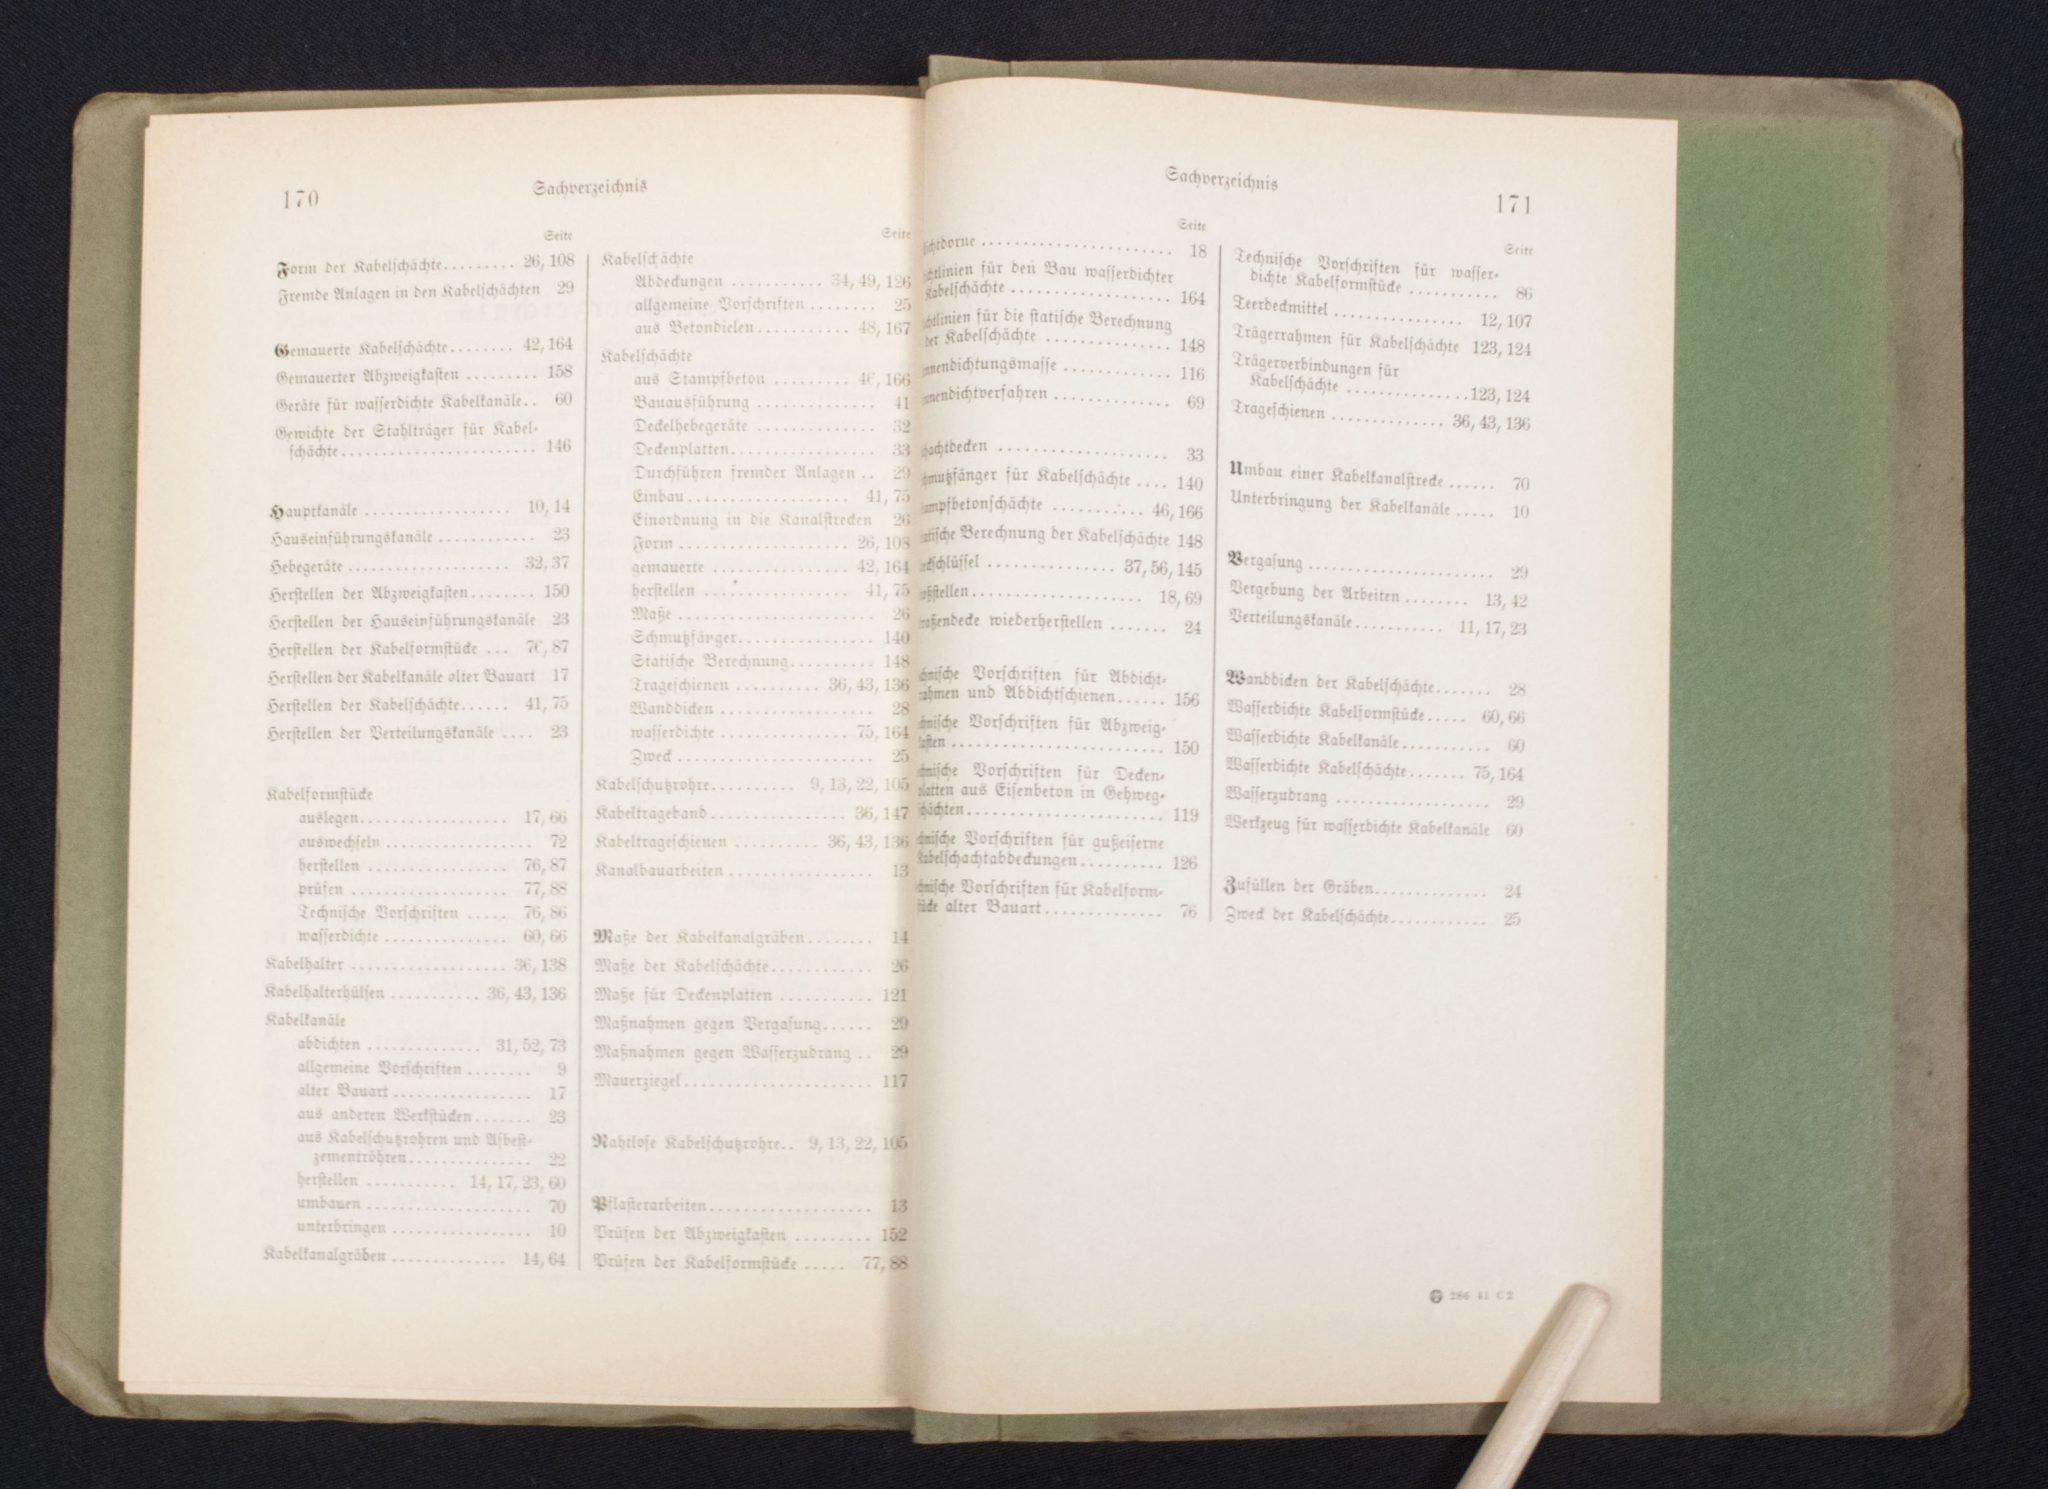 170
Sachverzeichnis
Seite
Form der Kabelschächte......... 26, 108
Fremde Anlagen in den Kabelschächten 29
Gemauerte Kabelschächte........ 42, 164
Gemauerter Abzweigkasten ......... 158
Geräte für wasserdichte Kabelkanäle.. 60
Gewichte der Stahlträger für Kabel-
schächte........................ 146
Hauptkanäle .................. 10, 14
Hauseinführungskanäle ............ 23
Hebegeräte .................... 32, 37
Herstellen der Abzweigkasten........ 150
Herstellen der Hauseinführungskanäle 23
Herstellen der Kabelformstücke ... 76, 87
Herstellen der Kabelkanäle alter Bauart 17
Herstellen der Kabelschächte...... 41, 75
Herstellen der Verteilungskanäle .... 23
Kabelformstücke
auslegen.................. 17, 66
auswechseln .................. 72
herstellen ................. 76, 87
prüfen ................... 77, 88
Technische Vorschriften ..... 76, 86
wasserdichte ............... 60, 66
Kabelhalter ................... 36, 138
Kabelhalterhülsen ........... 36, 43, 136
Kabelkanäle
abdichten .............. 31, 52, 73
allgemeine Vorschriften ........ 9
alter Bauart ................. 17
aus anderen Werkstücken....... 23
aus Kabelschutzrohren und Asbest-
zementröhren............... 22
herstellen ........... 14, 17, 23, 60
umbauen .................... 70
unterbringen ................. 10
Kabelkanalgräben .............. 14, 64
Seite
Kabelschächte
Abdeckungen ........... 34, 49, 126
allgemeine Vorschriften ........ 25
aus Betondielen........... 48, 167
Kabelschächte
aus Stampfbeton ......... 46, 166
Bauausführung .............. 41
Deckelhebegeräte .............. 32
Deckenplatten................. 33
Durchführen fremder Anlagen .. 29
Einbau................... 41, 75
Einordnung in die Kanalstrecken 26
Form .................... 26, 108
gemauerte ................ 42, 164
herstellen ................. 41, 75
Maße ........................ 26
Schmutzfänger................ 140
Statische Berechnung.......... 148
Trageschienen .......... 36, 43, 136
Wanddicken .................. 28
wasserdichte ............... 75, 164
Zweck ....................... 25
Kabelschutzrohre.......... 9, 13, 22, 105
Kabeltrageband................ 36, 147
Kabeltrageschienen .......... 36, 43, 136
Kanalbauarbeiten ................. 13
Maße der Kabelkanalgräben........ 14
Maße der Kabelschächte............ 26
Maße für Deckenplatten ........... 121
Maßnahmen gegen Vergasung...... 29
Maßnahmen gegen Wasserzudrang .. 29
Mauerziegel....................... 117
Nahtlose Kabelschutzrohre.. 9, 13, 22, 105
Pflasterarbeiten................... 13
Prüfen der Abzweigkasten ......... 152
Prüfen der Kabelformstücke ..... 77, 88
Sachverzeichnis
171
Seite
ichtdorne ....................... 18
ichtlinien für den Bau wasserdichter
Kabelschächte ................... 164
ichtlinien für die statische Berechnung
der Kabelschächte ............... 148
innendichtungsmasse ............. 116
innendichtverfahren .............. 69
chachtdecken .................... 33
chmutzfänger für Kabelschächte .... 140
tampfbetonschächte ........... 46, 166
tatische Berechnung der Kabelschächte 148
teckschlüssel ............... 37, 56, 145
toßstellen..................... 18, 69
traßendecke wiederherstellen ....... 24
echnische Vorschriften für Abdicht-
rahmen und Abdichtschienen...... 156
echnische Vorschriften für Abzweig-
kasten .......................... 150
echnische Vorschriften für Decken-
platten aus Eisenbeton in Gehweg-
schächten........................ 119
echnische Vorschriften für gußeiserne
Kabelschachtabdeckungen.......... 126
echnische Vorschriften für Kabelform-
stücke alter Bauart.............. 76
Seite
Technische Vorschriften für wasser-
dichte Kabelformstücke ........... 86
Teerdeckmittel ................ 12, 107
Trägerrahmen für Kabelschächte 123, 124
Trägerverbindungen für
Kabelschächte ............... 123, 124
Trageschienen .............. 36, 43, 136
Umbau einer Kabelkanalstrecke ...... 70
Unterbringung der Kabelkanäle ..... 10
Vergasung ....................... 29
Vergebung der Arbeiten ........ 13, 42
Verteilungskanäle ........... 11, 17, 23
Wanddicken der Kabelschächte....... 28
Wasserdichte Kabelformstücke..... 60, 66
Wasserdichte Kabelkanäle........... 60
Wasserdichte Kabelschächte....... 75, 164
Wasserzudrang ................... 29
Werkzeug für wasserdichte Kabelkanäle 60
Zufüllen der Gräben.............. 24
Zweck der Kabelschächte............ 25
286 41 C 2